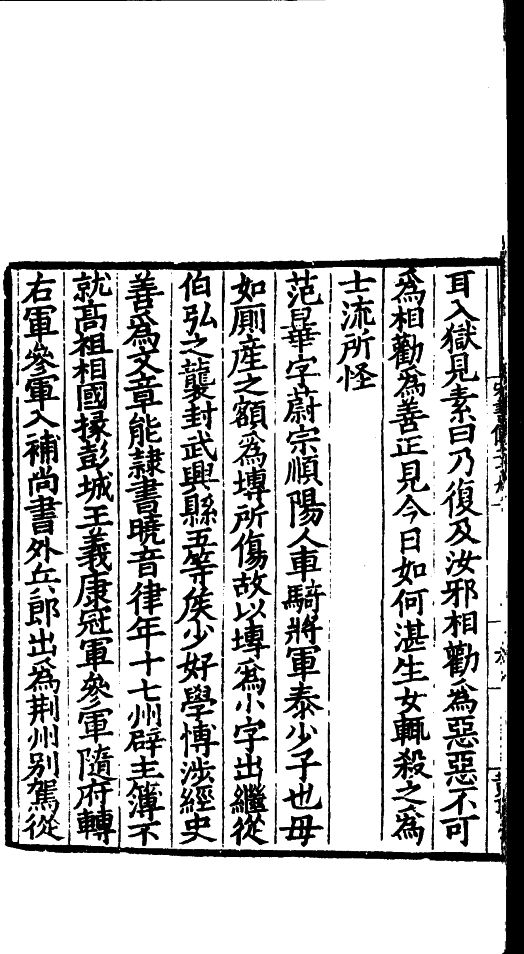 耳入獄見素曰乃復及汝邪相勸爲惡惡不可
爲相勸爲善正見今日如何湛生女輒殺之爲
士流所怪
范曄字蔚宗順陽人車騎將軍泰少子也母
如厠産之額爲塼所傷故以塼爲小字出繼從
伯弘之襲封武興縣五等侯少好學博涉經史
善爲文章能隷書曉音律年十七州辟主簿不
就高祖相國掾彭城王義康冠軍參軍隨府轉
右軍參軍入補尚書外兵郎出爲荆州别駕從